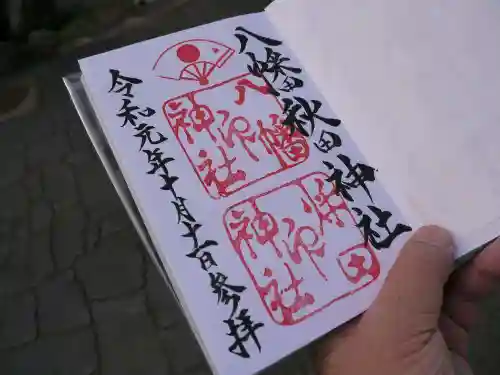 八幡秋田神社
八幡
神社印
秋田
神社印
令和元年十月十一日参拝